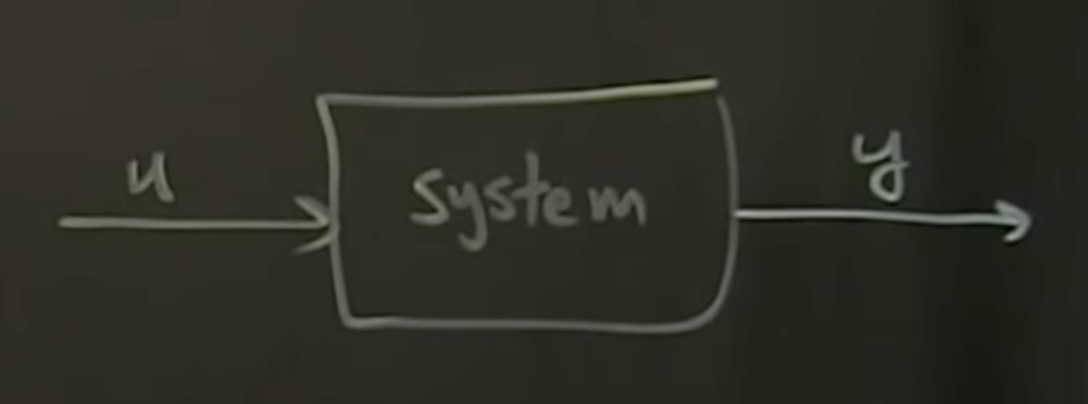 u
system
y